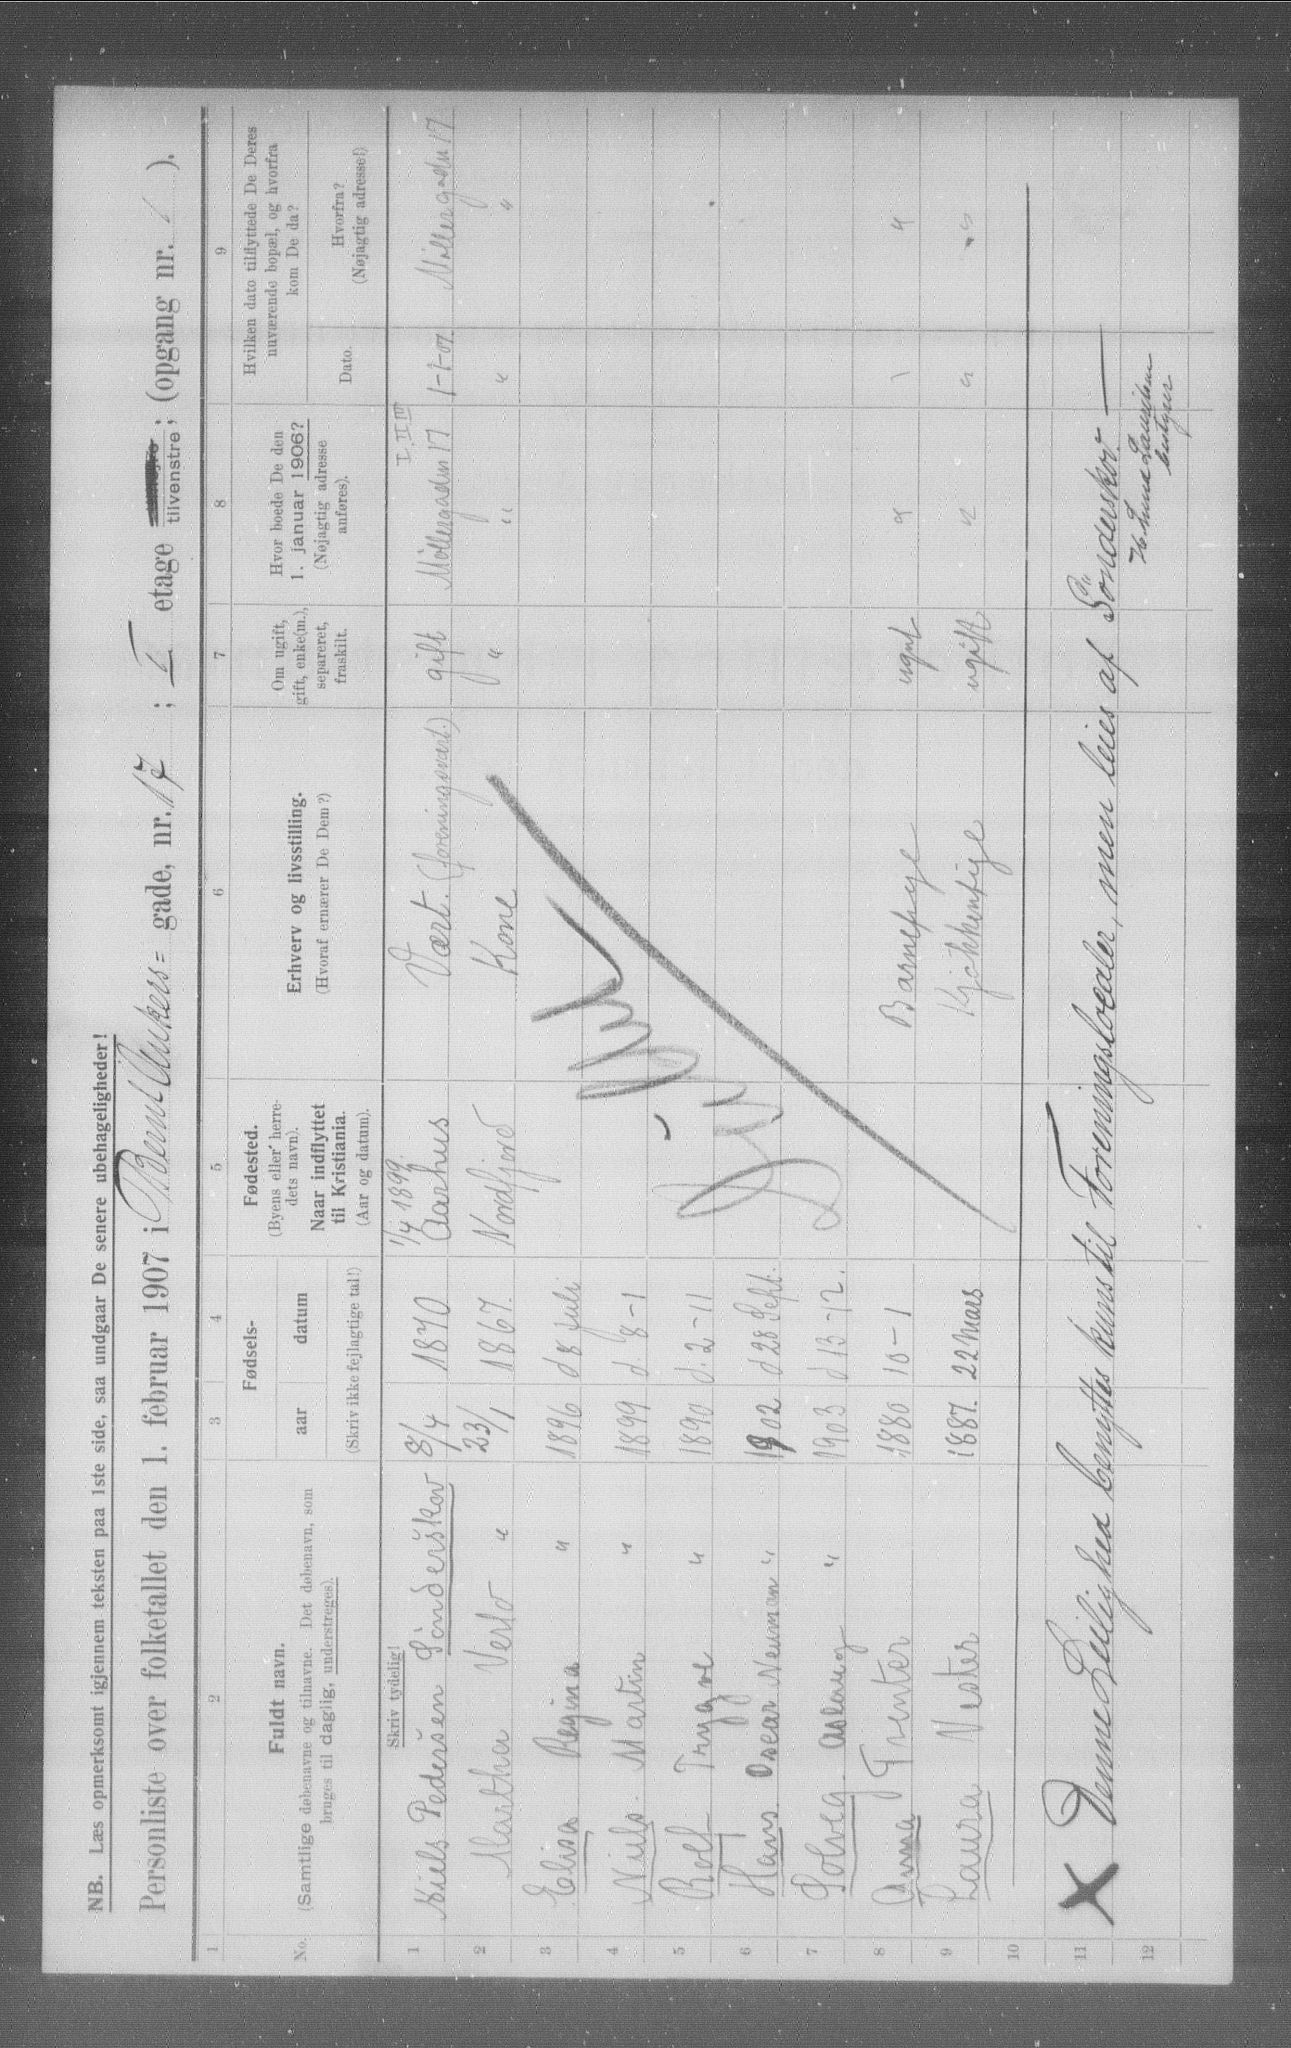 NB. Læs opmerksomt igjennem teksten paa 1ste side, saa undgaar De senere ubehageligheder!
Personliste over folketallet den 1. februar 1907 i Bernt Ankers= gade, nr. 17 ; I etage tilvenstre; (opgang nr. ).
1 2 3 4 5 6 7 8 9
No.
Fuldt navn.
(Samtlige døbenavne og tilnavne. Det døbenavn, som
bruges til daglig, understreges).
Fødsels-
aar datum
(Skriv ikke fejlagtige tal!)
Fødested.
(Byens eller herre-
dets navn).
Naar indflyttet
til Kristiania.
(Aar og datum).
Erhverv og livsstilling.
(Hvoraf ernærer De Dem?)
Om ugift,
gift, enke(m.),
separeret,
fraskilt.
Hvor boede De den
1. januar 1906?
(Nøjagtig adresse
anføres).
Hvilken dato tilflyttede De Deres
nuværende bopæl, og hvorfra
kom De da?
Dato.
Hvorfra?
(Nøjagtig adresse!)
Skriv tydelig!
1/4 1899. I, II III
1 Niels Pedersen Sönderskov 8/4 1870 Aarhus Vært. (foreningsvært.) gift Möllergaden 17 1-1-07. Möllergaden 17
2 Martha Verlo " 23/1 1867. Nordfjord Kone " " " "
3 Elisa Regina " 1896 d 8 Juli
4 Niels. Martin " 1899 d. 8-1
5 Rolf Trygve " 1890 d. 2-11
6 Hans. Oscar Neuman " 1902 d 28 Sept.
7 Solveg. Aslaug " 1903 d 13-12.
8 Anna Frenter 1880 10-1 Barnepige ugift " "
9 Laura Vester 1887. 22 Mars Kjøkkenpige ugift " " "
10
11 X Denne Leilighed benyttes kuns til Foreningslocaler, men leies af Sönderskov —
12
bestyrer